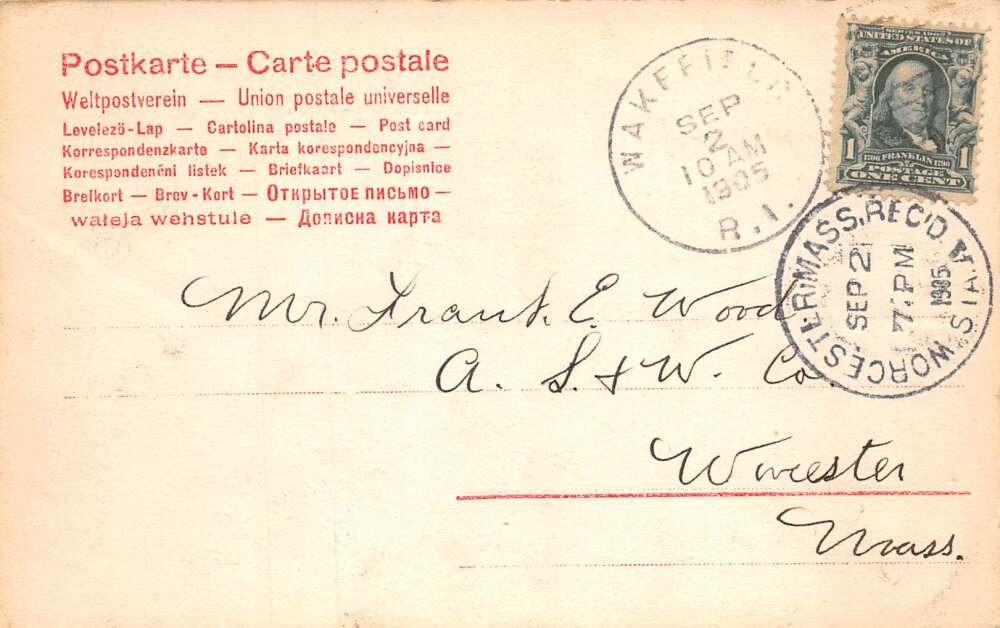 Postkarte — Carte postale
Weltpostverein — Union postale universelle
Levelező-Lap — Cartolina postale — Post card
Korrespondenzkarte — Karta korespondencyjna —
Korespondenční listek — Briefkaart — Dopisnice
Brefkort — Brev-Kort — Открытое письмо —
wałeja wehstule — Дописна карта
WAKEFIELD
SEP
2
10 AM
1905
R.I.
SERIES 1902
UNITED STATES OF
AMERICA
1706 FRANKLIN 1790
POSTAGE
1 ONE CENT 1
WORCESTER, MASS. REC'D.
SEP 2
7 PM
1905
Mr. Frank. E. Wood
A. S. & W. Co.
Worcester
Mass.